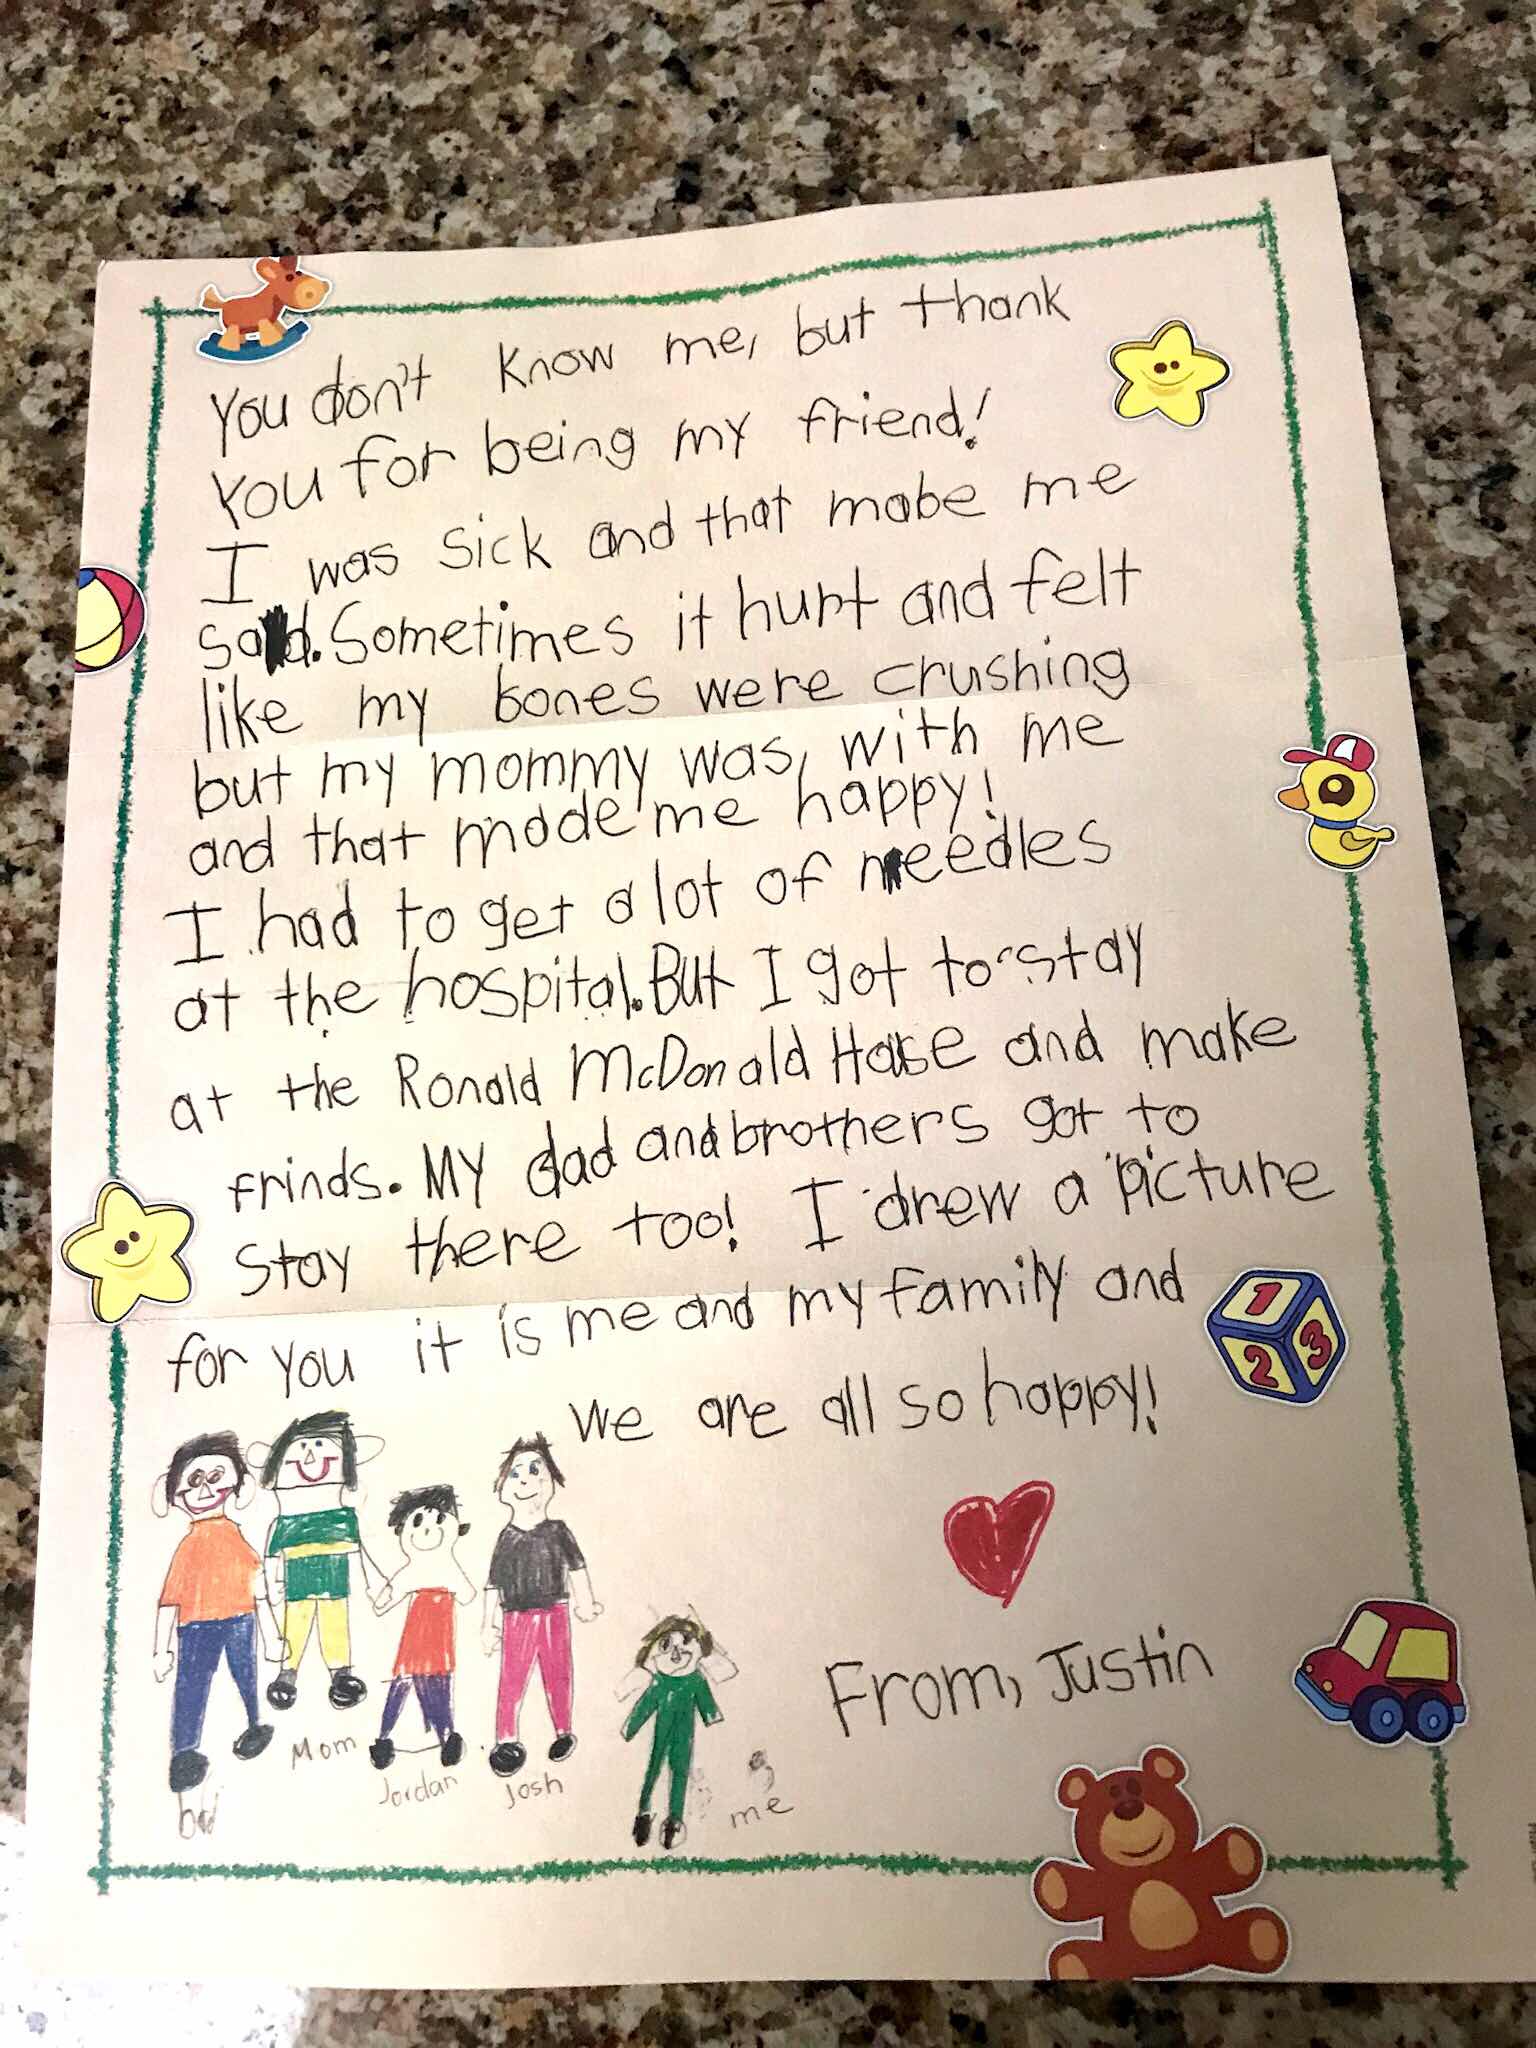 You don't know me, but thank
you for being my friend!
I was sick and that mabe me
sad. Sometimes it hurt and felt
like my bones were crushing
but my mommy was, with me
and that made me happy!
I had to get a lot of needles
at the hospital. But I got to stay
at the Ronald McDonald House and make
frinds. My dad and brothers got to
stay there too! I drew a picture
for you it is me and my family and
we are all so happy!
From, Justin
Mom
Jordan
Josh
me
1
2
3